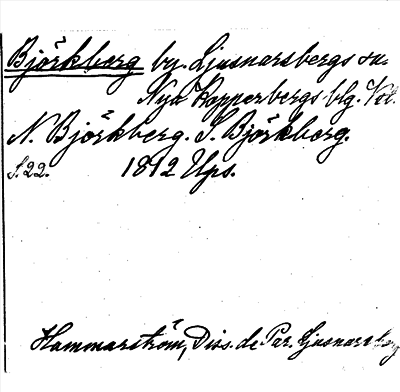 Björkborg by. Ljusnarsbergs sn.
Nya Kopperbergs blg. Vstl.
N. Björkberg. S. Björkborg.
S. 22. 1812 Ups.
Hammarström, Diss. de Par. Ljusnarsberg